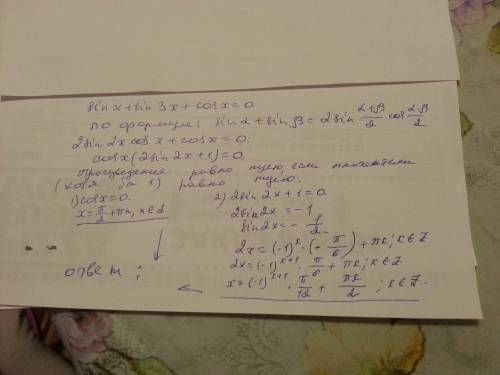 sin x + sin 3x + cos x = 0.
по формуле: sin α + sin β = 2 sin (α+β)/2 cos (α-β)/2
2 sin 2x cos x + cos x = 0.
cos x (2 sin 2x + 1) = 0.
Произведение равно нулю, если множители
(хотя бы 1) равно нулю.
1) cos x = 0.
x = π/2 + πn, n ∈ Z
2) 2 sin 2x + 1 = 0.
2 sin 2x = -1
sin 2x = - 1/2.
2x = (-1)^k · (- π/6) + πk; k ∈ Z
2x = (-1)^(k+1) · π/6 + πk; k ∈ Z
x = (-1)^(k+1) · π/12 + πk/2; k ∈ Z.
ответ: